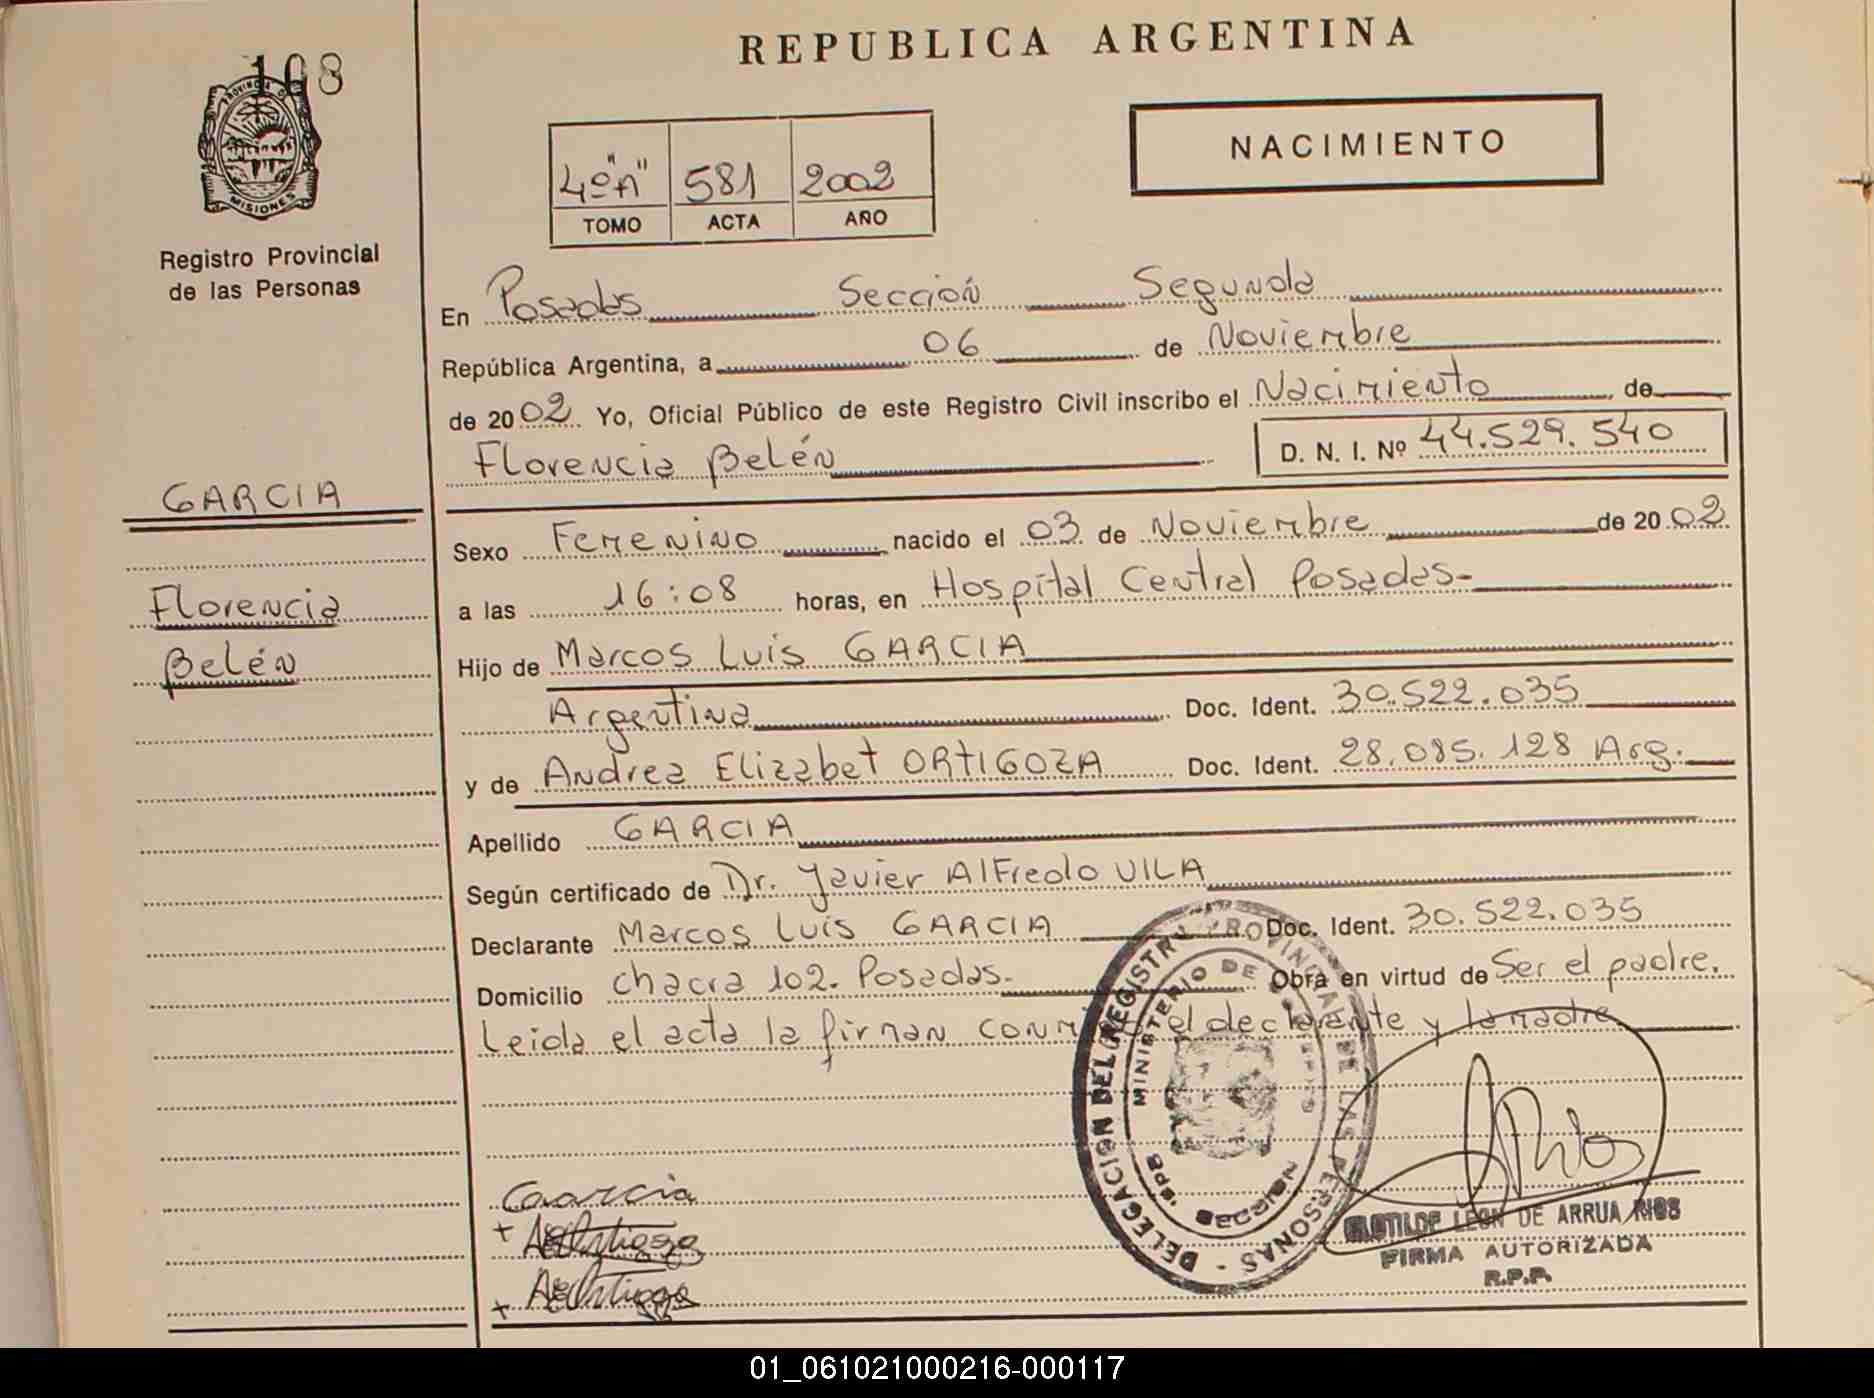 108
REPUBLICA ARGENTINA
PROVINCIA DE
MISIONES
Registro Provincial
de las Personas
4º "A" 581 2002
TOMO ACTA AÑO
NACIMIENTO
En Posadas Sección Segunda
República Argentina, a 06 de Noviembre
de 2002 Yo, Oficial Público de este Registro Civil inscribo el Nacimiento, de
Florencia Belén D. N. I. Nº 44.529.540
GARCIA
Florencia
Belén
Sexo Femenino nacido el 03 de Noviembre de 2002
a las 16:08 horas, en Hospital Central Posadas-
Hijo de Marcos Luis GARCIA
Argentina Doc. Ident. 30.522.035
y de Andrea Elizabet ORTIGOZA Doc. Ident. 28.085.128 Arg.
Apellido GARCIA
Según certificado de Dr. Javier Alfredo VILA
Declarante Marcos Luis GARCIA Doc. Ident. 30.522.035
Domicilio Chacra 102. Posadas. Obra en virtud de Ser el padre.
Leida el acta la firman conmigo el declarante y la madre
DELEGACION DEL REGISTRO PROVINCIAL DE LAS PERSONAS
MINISTERIO DE
SECCION
Garcia
+ AEOrtigoza
+ AEOrtigoza
ARios
CLOTILDE LEON DE ARRUA RIOS
FIRMA AUTORIZADA
R.P.P.
01_061021000216-000117